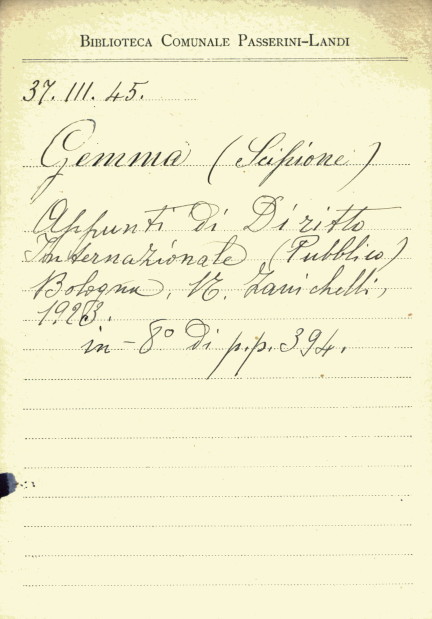 BIBLIOTECA COMUNALE PASSERINI-LANDI
37. III. 45.
Gemma (Scipione)
Appunti di Diritto
Internazionale (Pubblico)
Bologna, N. Zanichelli,
1923.
in - 8° di p.p. 394.